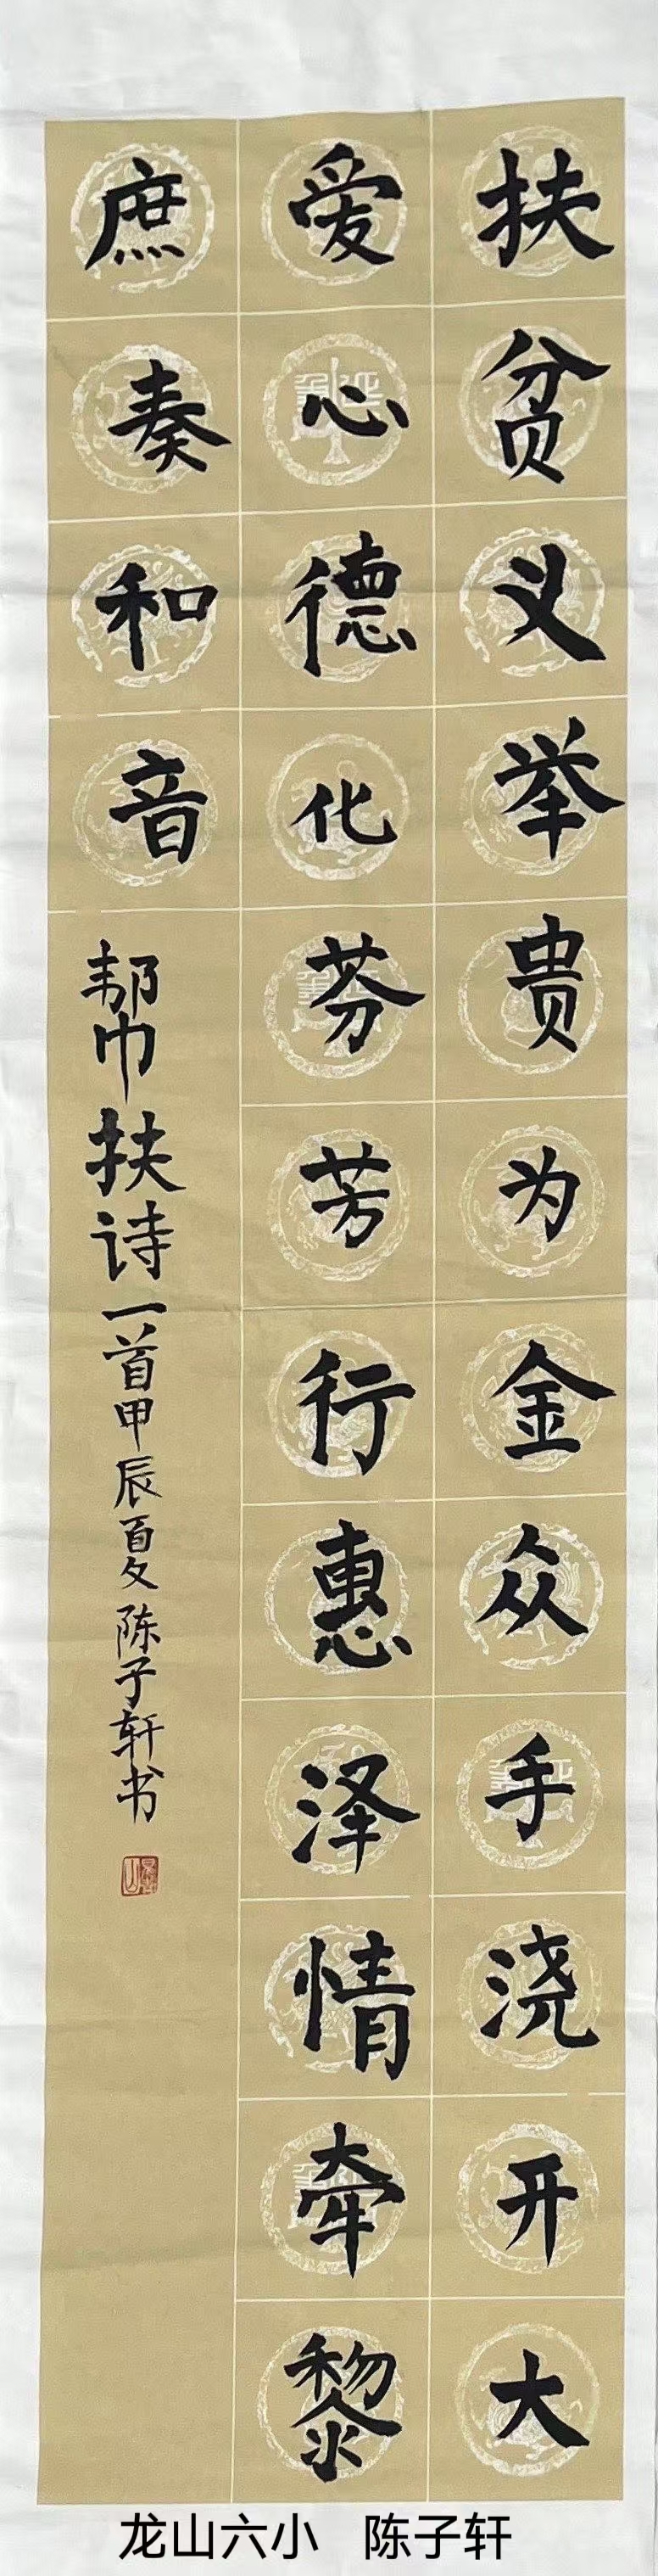 扶贫义举贵为金众手浇开大
爱心德化芬芳行惠泽情牵黎
庶奏和音
帮扶诗一首甲辰夏陈子轩书
龙山六小 陈子轩